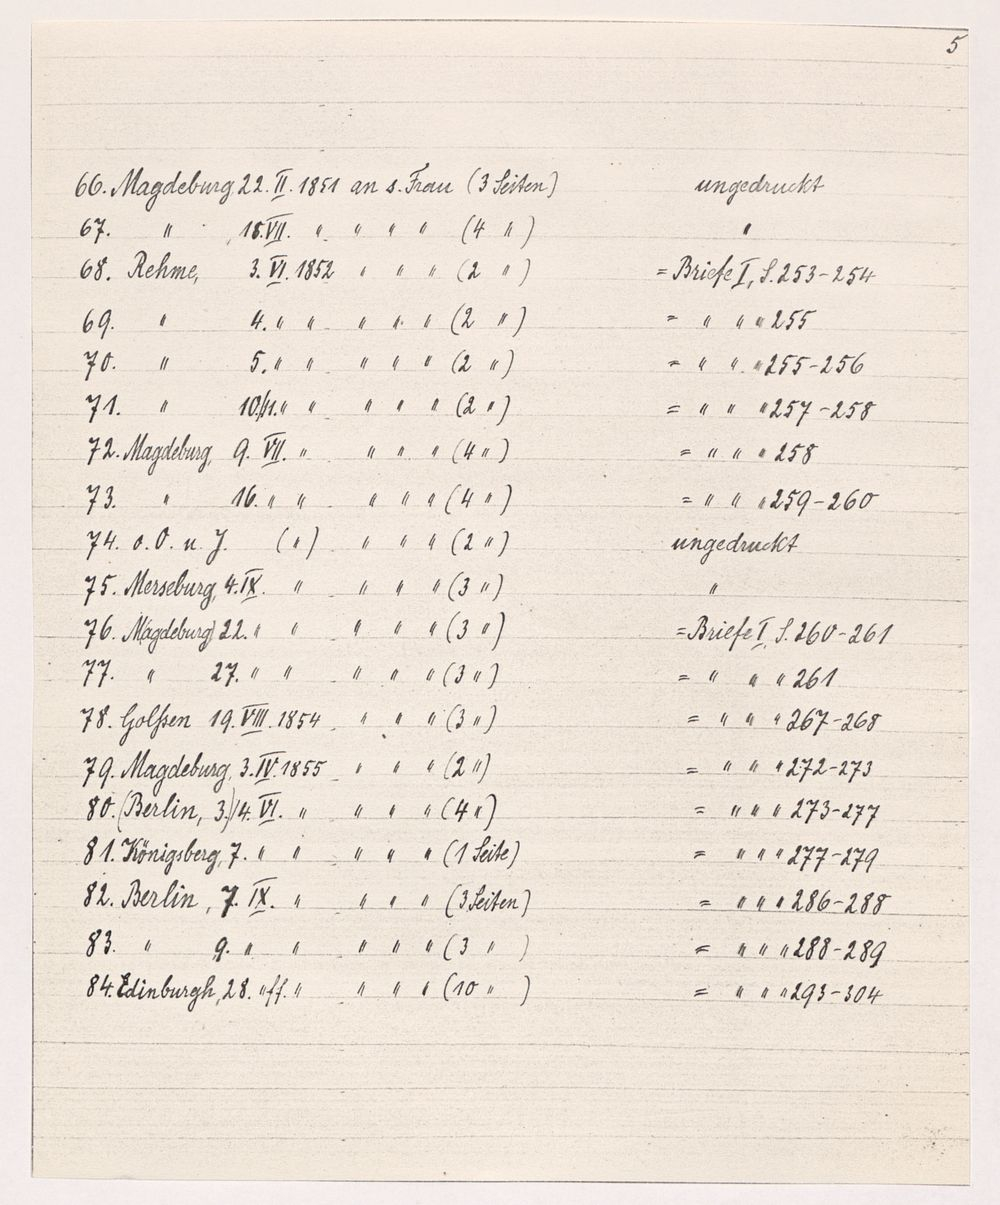 5
66. Magdeburg 22. II. 1851 an s. Frau (3 Seiten) ungedruckt
67. " , 18. VII. " " " " (4 ") "
68. Rehme, 3. VI. 1852 " " " (2 ") = Briefe I, S. 253-254
69. " 4. " " " " " (2 ") = " " " 255
70. " 5. " " " " " (2 ") = " " " 255-256
71. " 10./11. " " " " " (2 ") = " " " 257-258
72. Magdeburg, 9. VII. " " " " (4 ") = " " " 258
73. " 16. " " " " " (4 ") = " " " 259-260
74. o. O. u. J. (") " " " (2 ") ungedruckt
75. Merseburg, 4. IX. " " " " (3 ") "
76. Magdeburg) 22. " " " " " (3 ") = Briefe I, S. 260-261
77. " 27. " " " " " (3 ") = " " " 261
78. Golßen 19. VIII. 1854 " " " (3 ") = " " " 267-268
79. Magdeburg, 3. IV. 1855 " " " (2 ") = " " " 272-273
80. (Berlin, 3.)/4. VI. " " " " (4 ") = " " " 273-277
81. Königsberg, 7. " " " " " (1 Seite) = " " " 277-279
82. Berlin, 7. IX. " " " " (3 Seiten) = " " " 286-288
83. " 9. " " " " " (3 ") = " " " 288-289
84. Edinburgh, 28. " ff. " " " " (10 ") = " " " 293-304